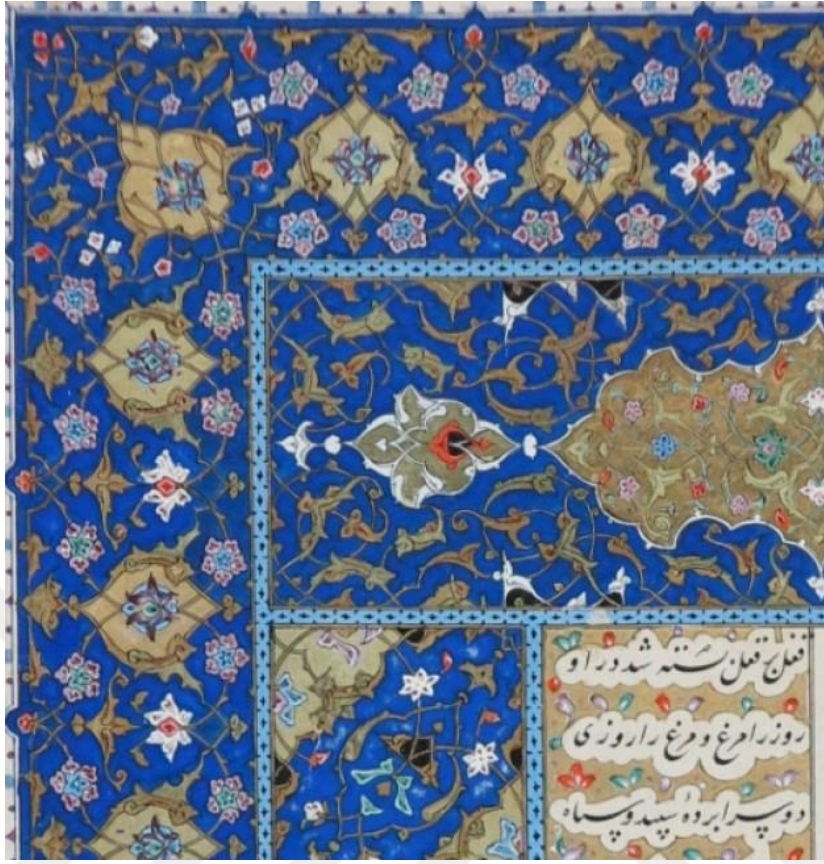 قفل بر قفل بسته شد در او
روز را مرغ و مرغ را روزی
دو سرا پرده سپید و سیاه